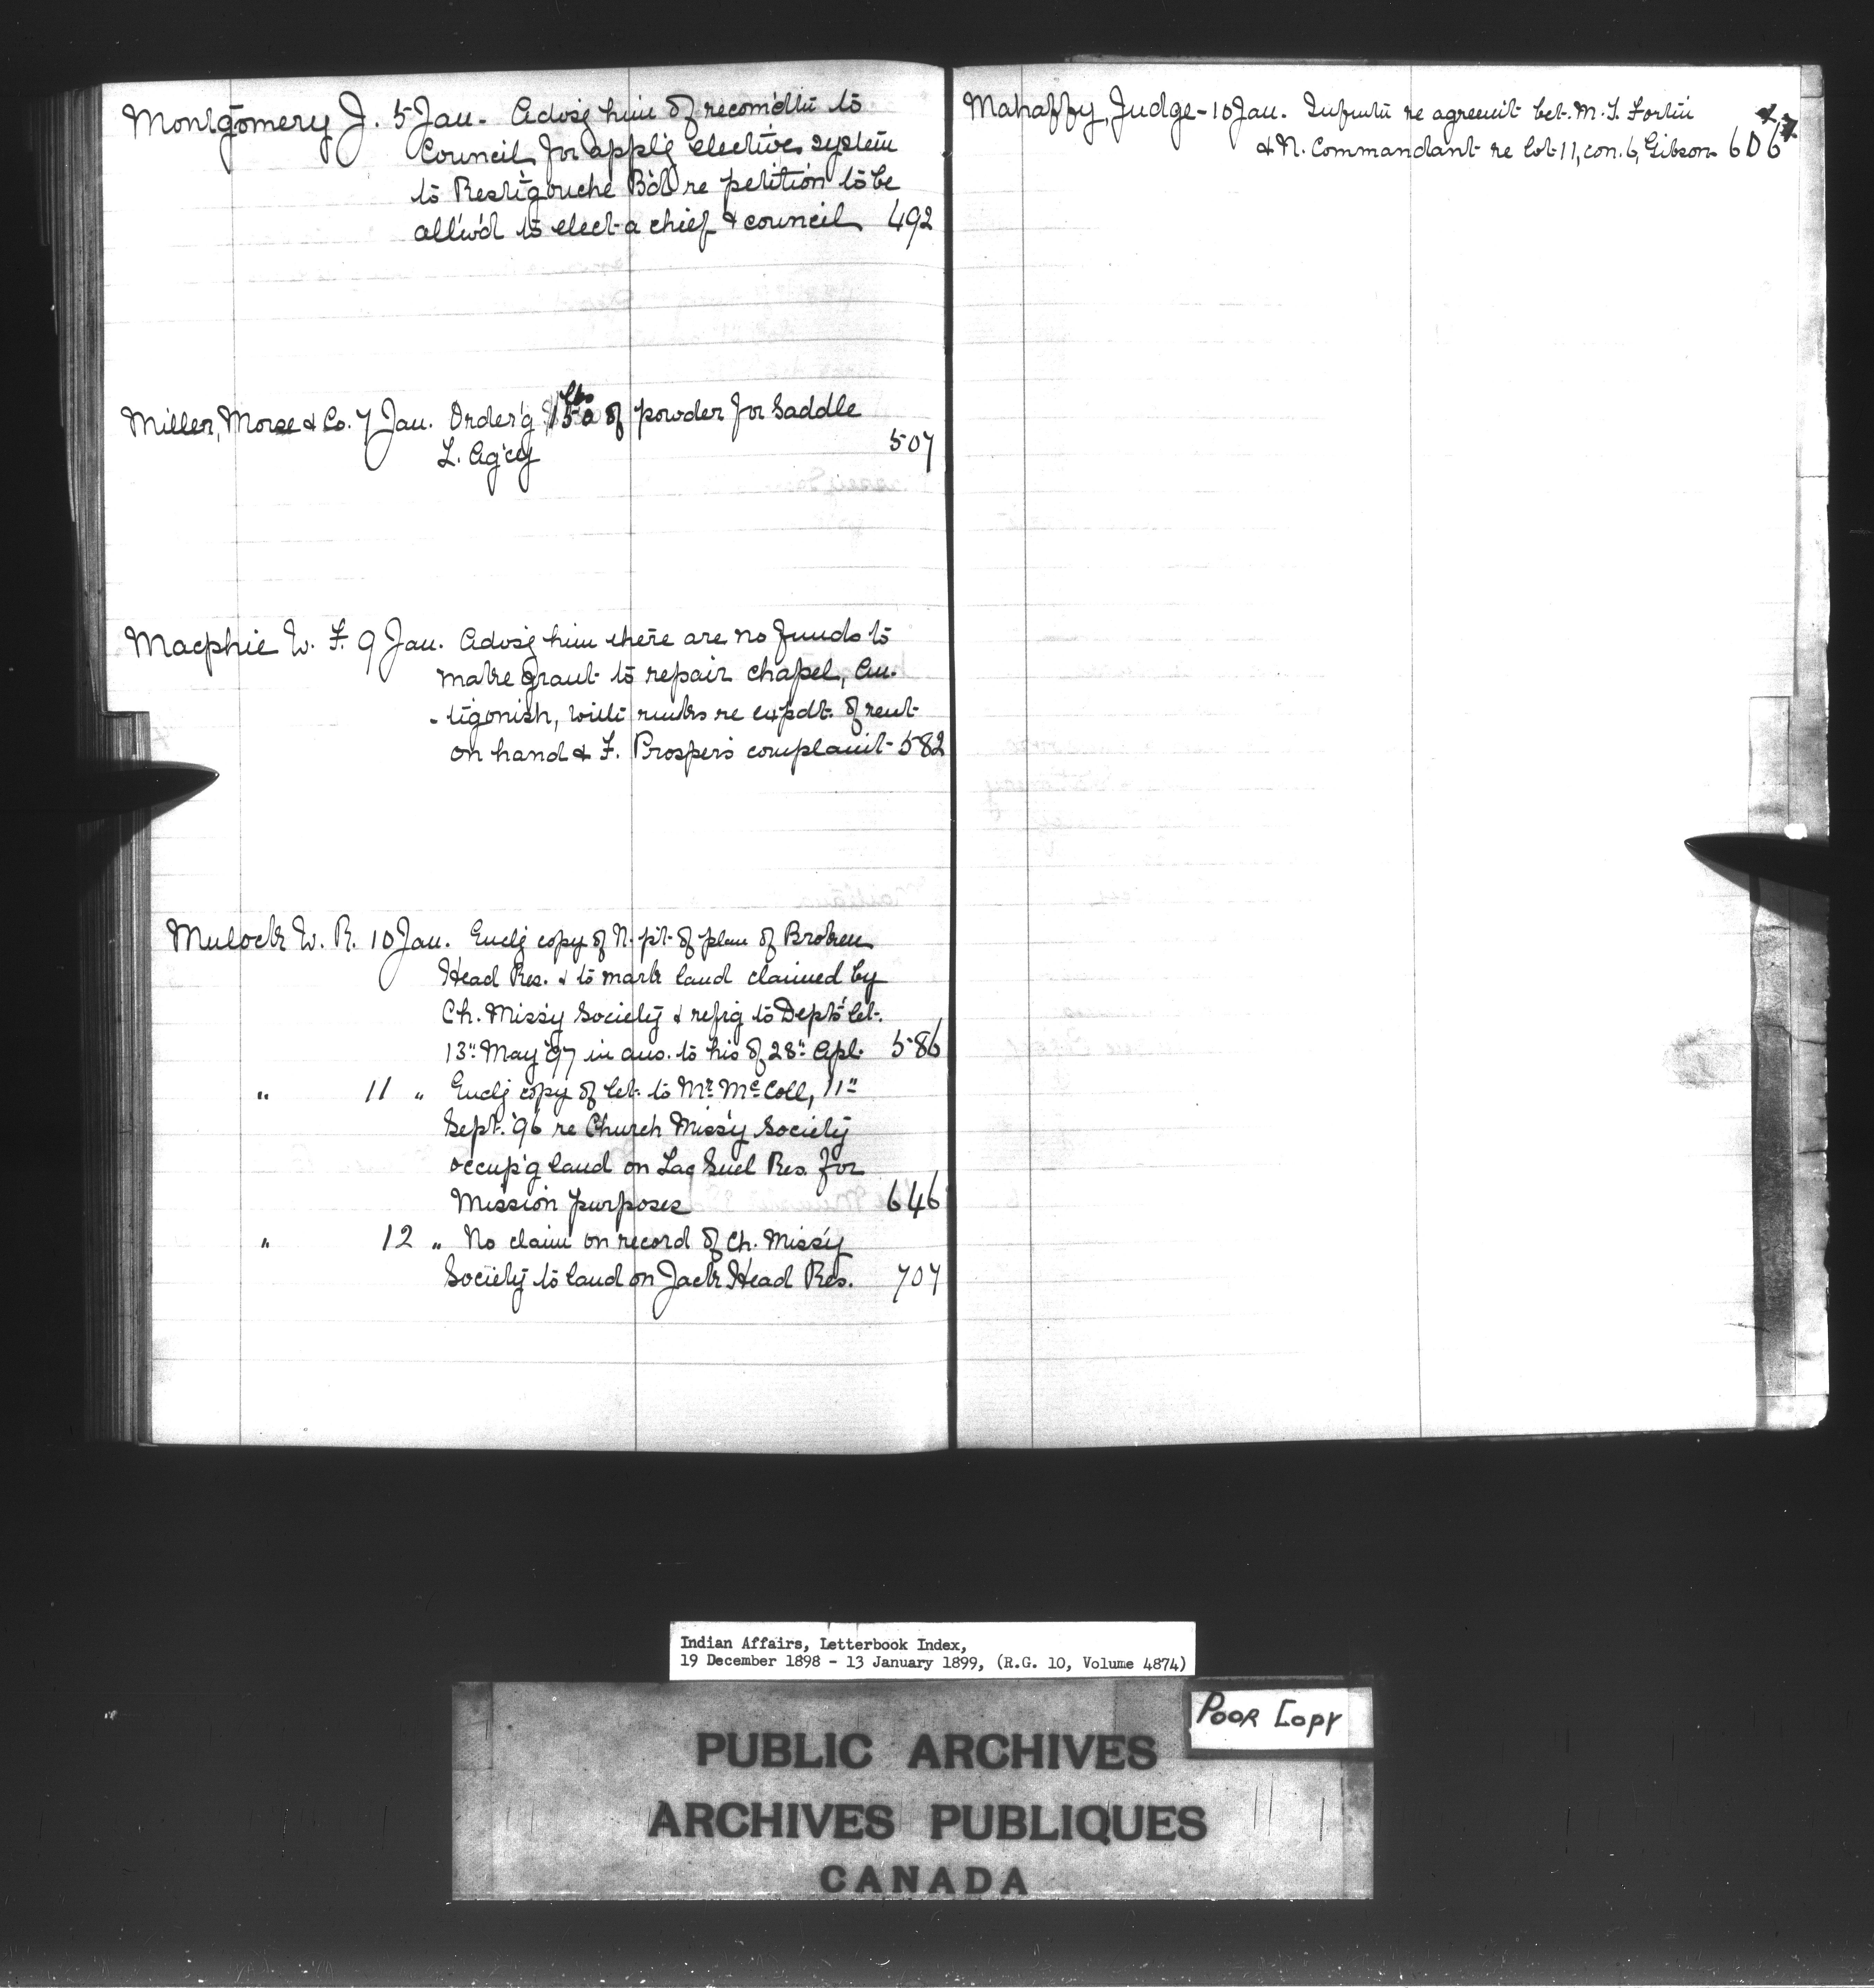 Montgomery J. 5 Jan. Advis'g him of recom'dtn to
Council for appl'g elective system
to Restigouche B'd re petition to be
all'w'd to elect a chief & council 492
Miller, Morse & Co. 7 Jan. Order'g 150 lbs of powder for Saddle
L. Ag'cy 507
Macphie W. F. 9 Jan. Advis'g him there are no funds to
make grant to repair chapel, An-
-tigonish, with rmks re expdt. of rent
on hand & F. Prosper's complaint 582
Mulock W. R. 10 Jan. Encl'g copy of N. pt. of plan of Broken
Head Res. & to mark land claimed by
Ch. Miss'y Society & ref'g to Dept's let.
13" May '97 in ans. to his of 28" Apl. 586
" 11 " Encl'g copy of let. to Mr. McColl, 11"
Sept. '96 re Church Miss'y Society
occup'g land on Lac Suel Res. for
Mission purposes 646
" 12 " No claim on record of Ch. Miss'y
Society to land on Jack Head Res. 707
Mahaffy, Judge - 10 Jan. Infmtn re agreem't bet. M. J. Fortin
& N. Commandant re lot 11, con. 6, Gibson 606
Indian Affairs, Letterbook Index,
19 December 1898 - 13 January 1899, (R.G. 10, Volume 4874)
POOR COPY
PUBLIC ARCHIVES
ARCHIVES PUBLIQUES
CANADA